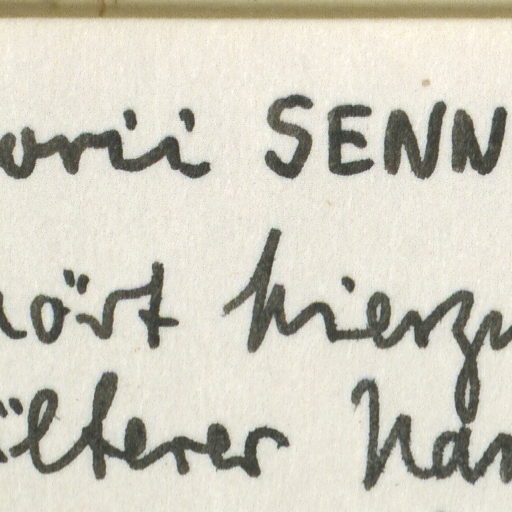 orii SENN
hört hierzu
älterer Nam